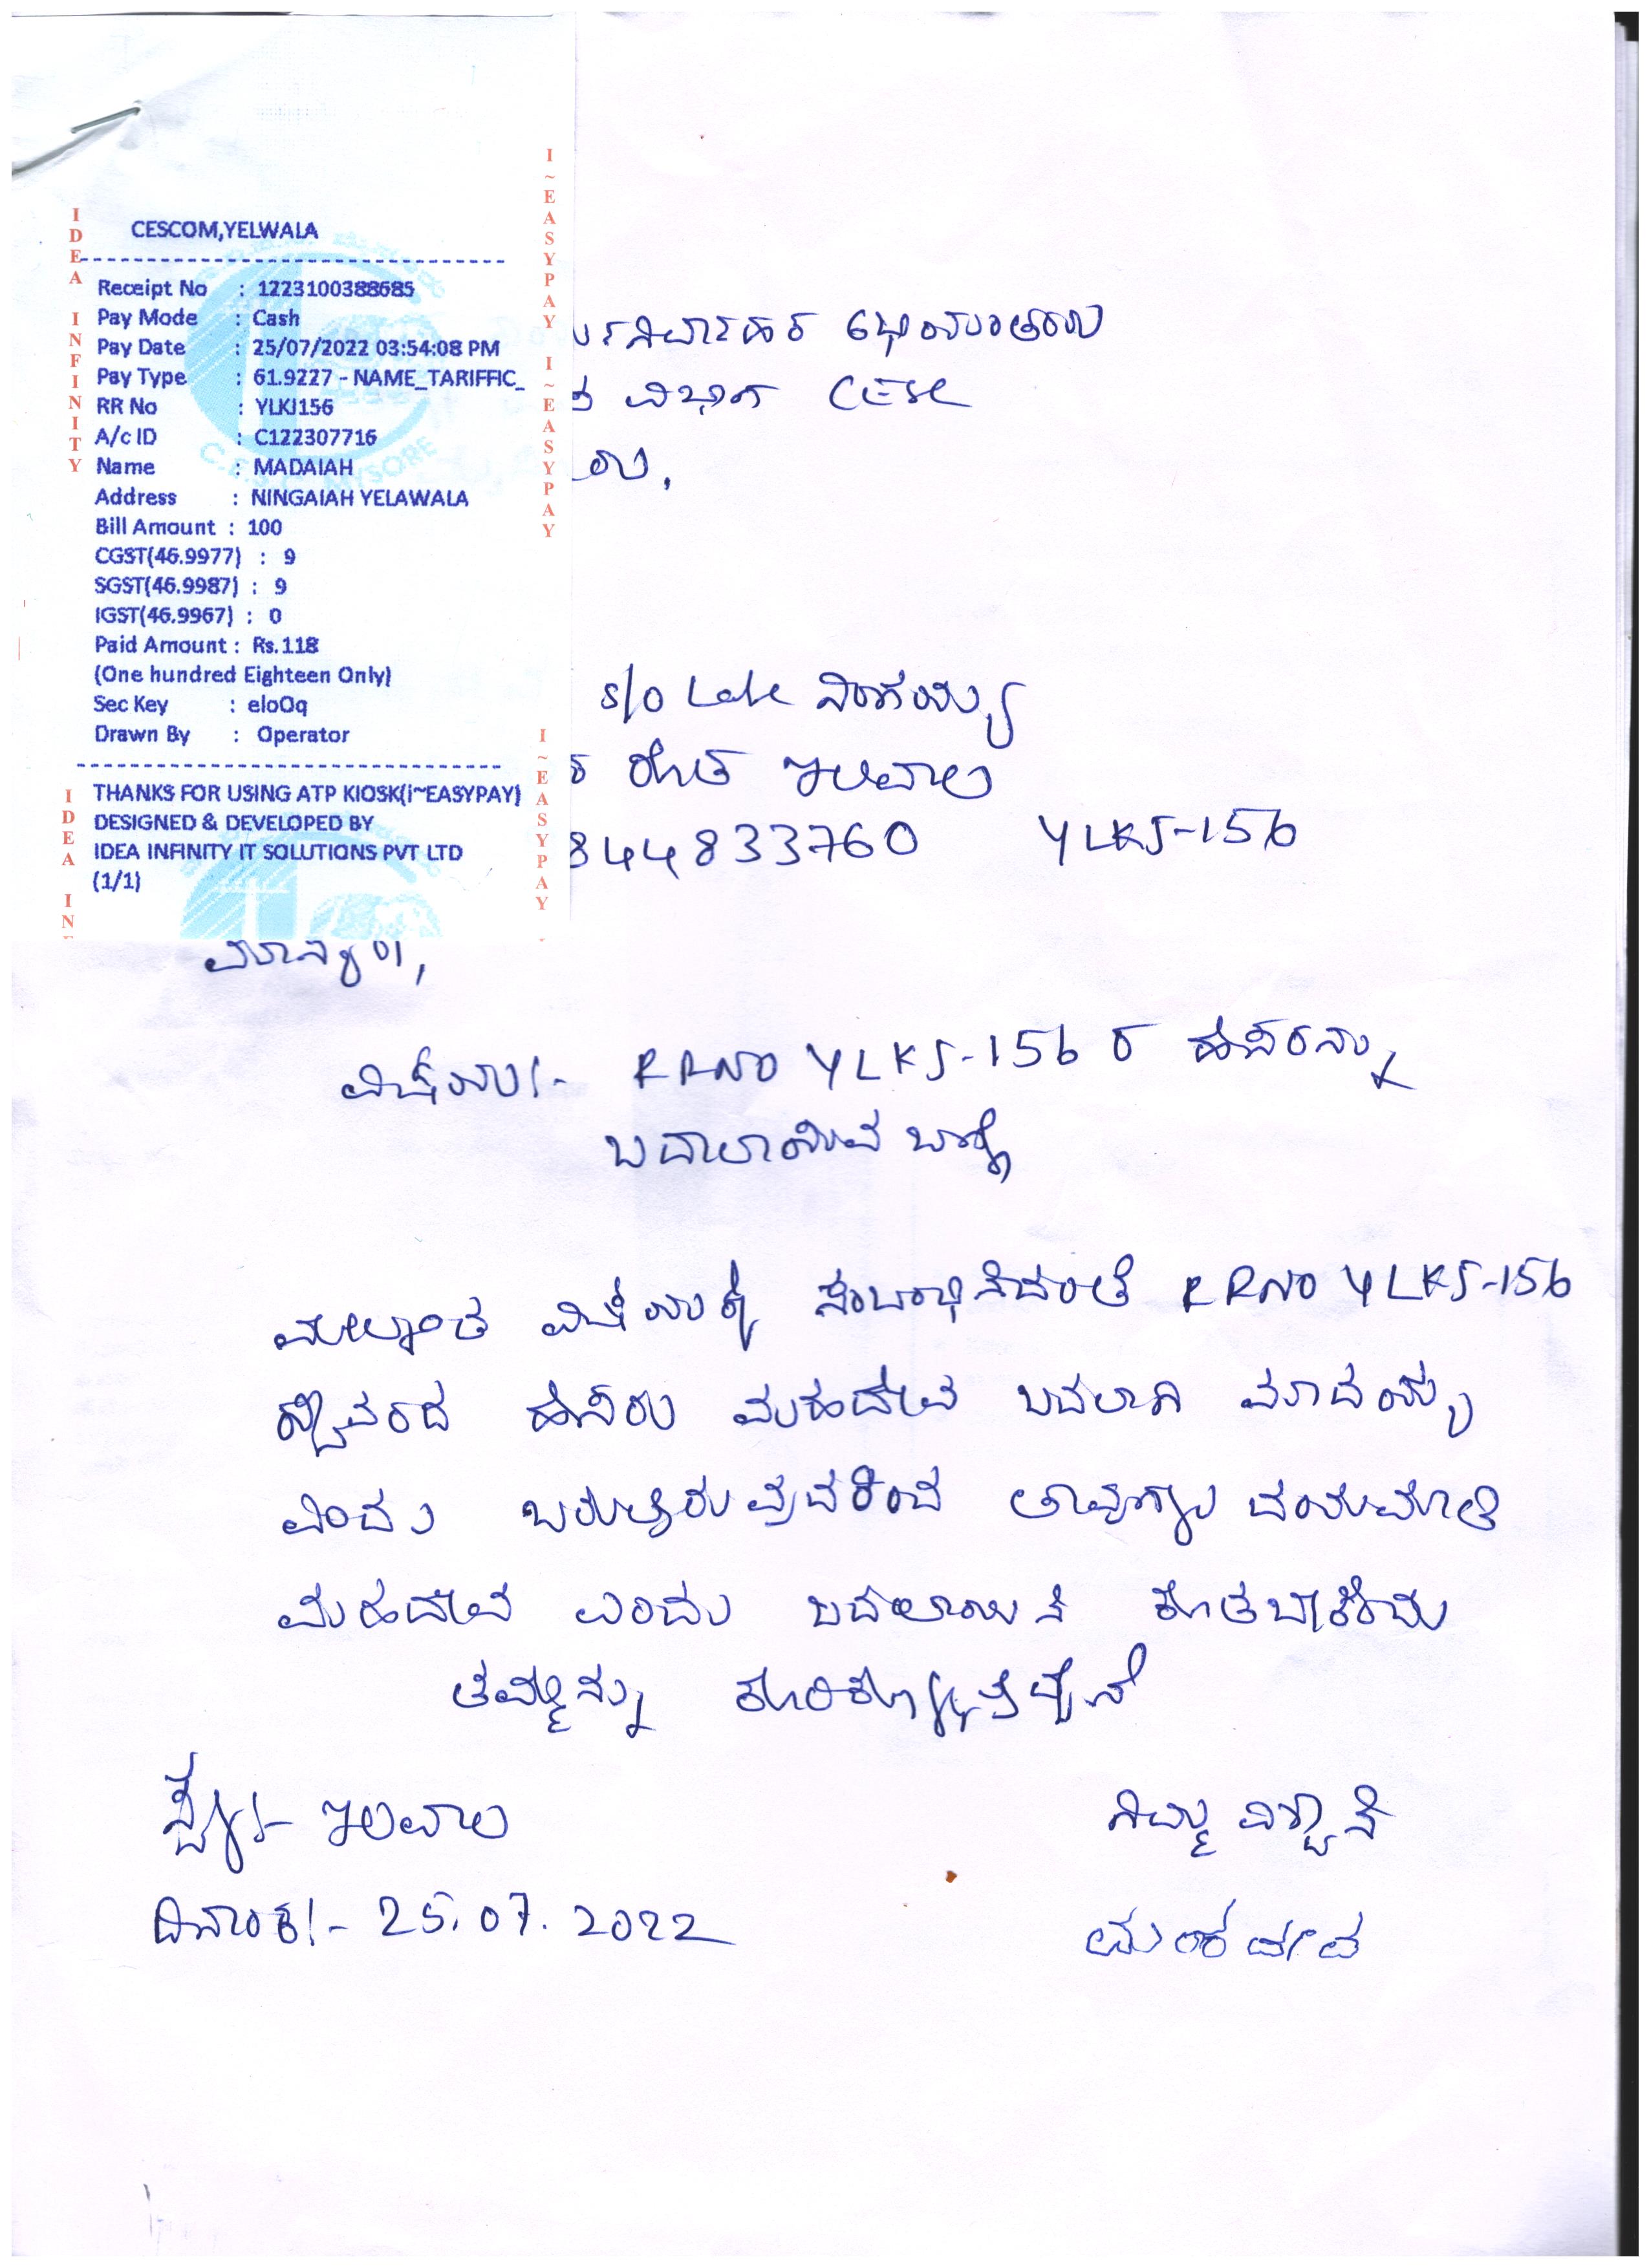 CESCOM,YELWALA
Receipt No : 1223100388685
Pay Mode : Cash
Pay Date : 25/07/2022 03:54:08 PM
Pay Type : 61.9227 - NAME_TARIFFIC_
RR No : YLKJ156
A/c ID : C122307716
Name : MADAIAH
Address : NINGAIAH YELAWALA
Bill Amount : 100
CGST(46.9977) : 9
SGST(46.9987) : 9
IGST(46.9967) : 0
Paid Amount : Rs.118
(One hundred Eighteen Only)
Sec Key : eloOq
Drawn By : Operator
THANKS FOR USING ATP KIOSK(i~EASYPAY)
DESIGNED & DEVELOPED BY
IDEA INFINITY IT SOLUTIONS PVT LTD
(1/1)
IDEA INFINITY
I~EASYPAY I~EASYPAY
IDEA IN
I~EASYPAY
ವಿಭಾಗ CESC
s/o Late ನಿಂಗಯ್ಯ
ಇಲವಾಲ
844833760 YLKJ-156
ಮಾನ್ಯರೇ,
ವಿಷಯ:- RRNO YLKJ-156 ರ ಹೆಸರನ್ನು
ಬದಲಾಯಿಸುವ ಬಗ್ಗೆ
ಮೇಲ್ಕಂಡ ವಿಷಯಕ್ಕೆ ಸಂಬಂಧಿಸಿದಂತೆ RRNO YLKJ-156
ಹೆಸರು ಮಹದೇವ ಬದಲಾಗಿ ಮಾದಯ್ಯ
ಎಂದು ಬರುತ್ತಿರುವುದರಿಂದ ತಾವುಗಳು ದಯಮಾಡಿ
ಮಹದೇವ ಎಂದು ಬದಲಾಯಿಸಿ ಕೊಡಬೇಕೆಂದು
ತಮ್ಮನ್ನು ಕೋರಿಕೊಳ್ಳುತ್ತೇನೆ
ಸ್ಥಳ:- ಇಲವಾಲ ನಿಮ್ಮ ವಿಶ್ವಾಸಿ
ದಿನಾಂಕ:- 25.07.2022 ಮಹದೇವ